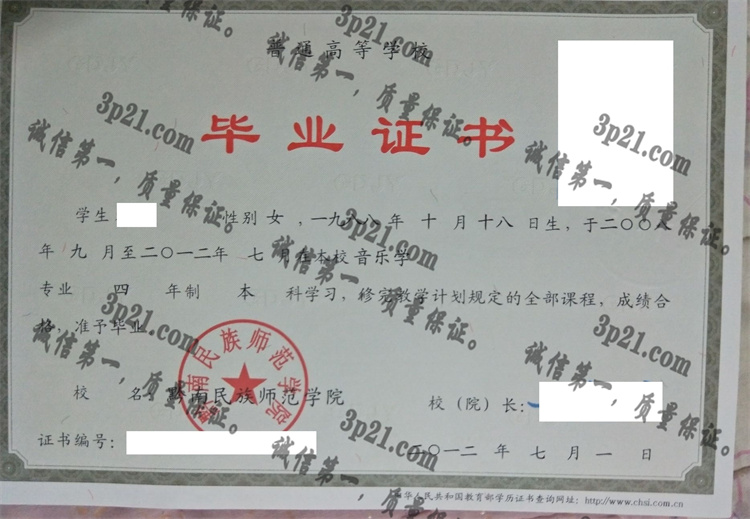 普通高等学校
毕业证书
学生 性别 女 ，一九八八 年 十 月 十八 日生，于二〇〇八
年 九 月至二〇一二年 七 月在本校 音乐学
专业 四 年制 本 科学习，修完教学计划规定的全部课程，成绩合
格，准予毕业
校 名 黔南民族师范学院
校（院）长：
证书编号：
二〇一二 年 七 月 一 日
华人民共和国教育部学历证书查询网址：http://www.chsi.com.cn
黔南民族师范学院
3p21.com
诚信第一，质量保证。
3p21.com
诚信第一，质量保证。
3p21.com
诚信第一，质量保证。
3p21.com
诚信第一，质量保证。
3p21.com
诚信第一，质量保证。
3p21.com
诚信第一，质量保证。
3p21.com
诚信第一，质量保证。
3p21.com
诚信第一，质量保证。